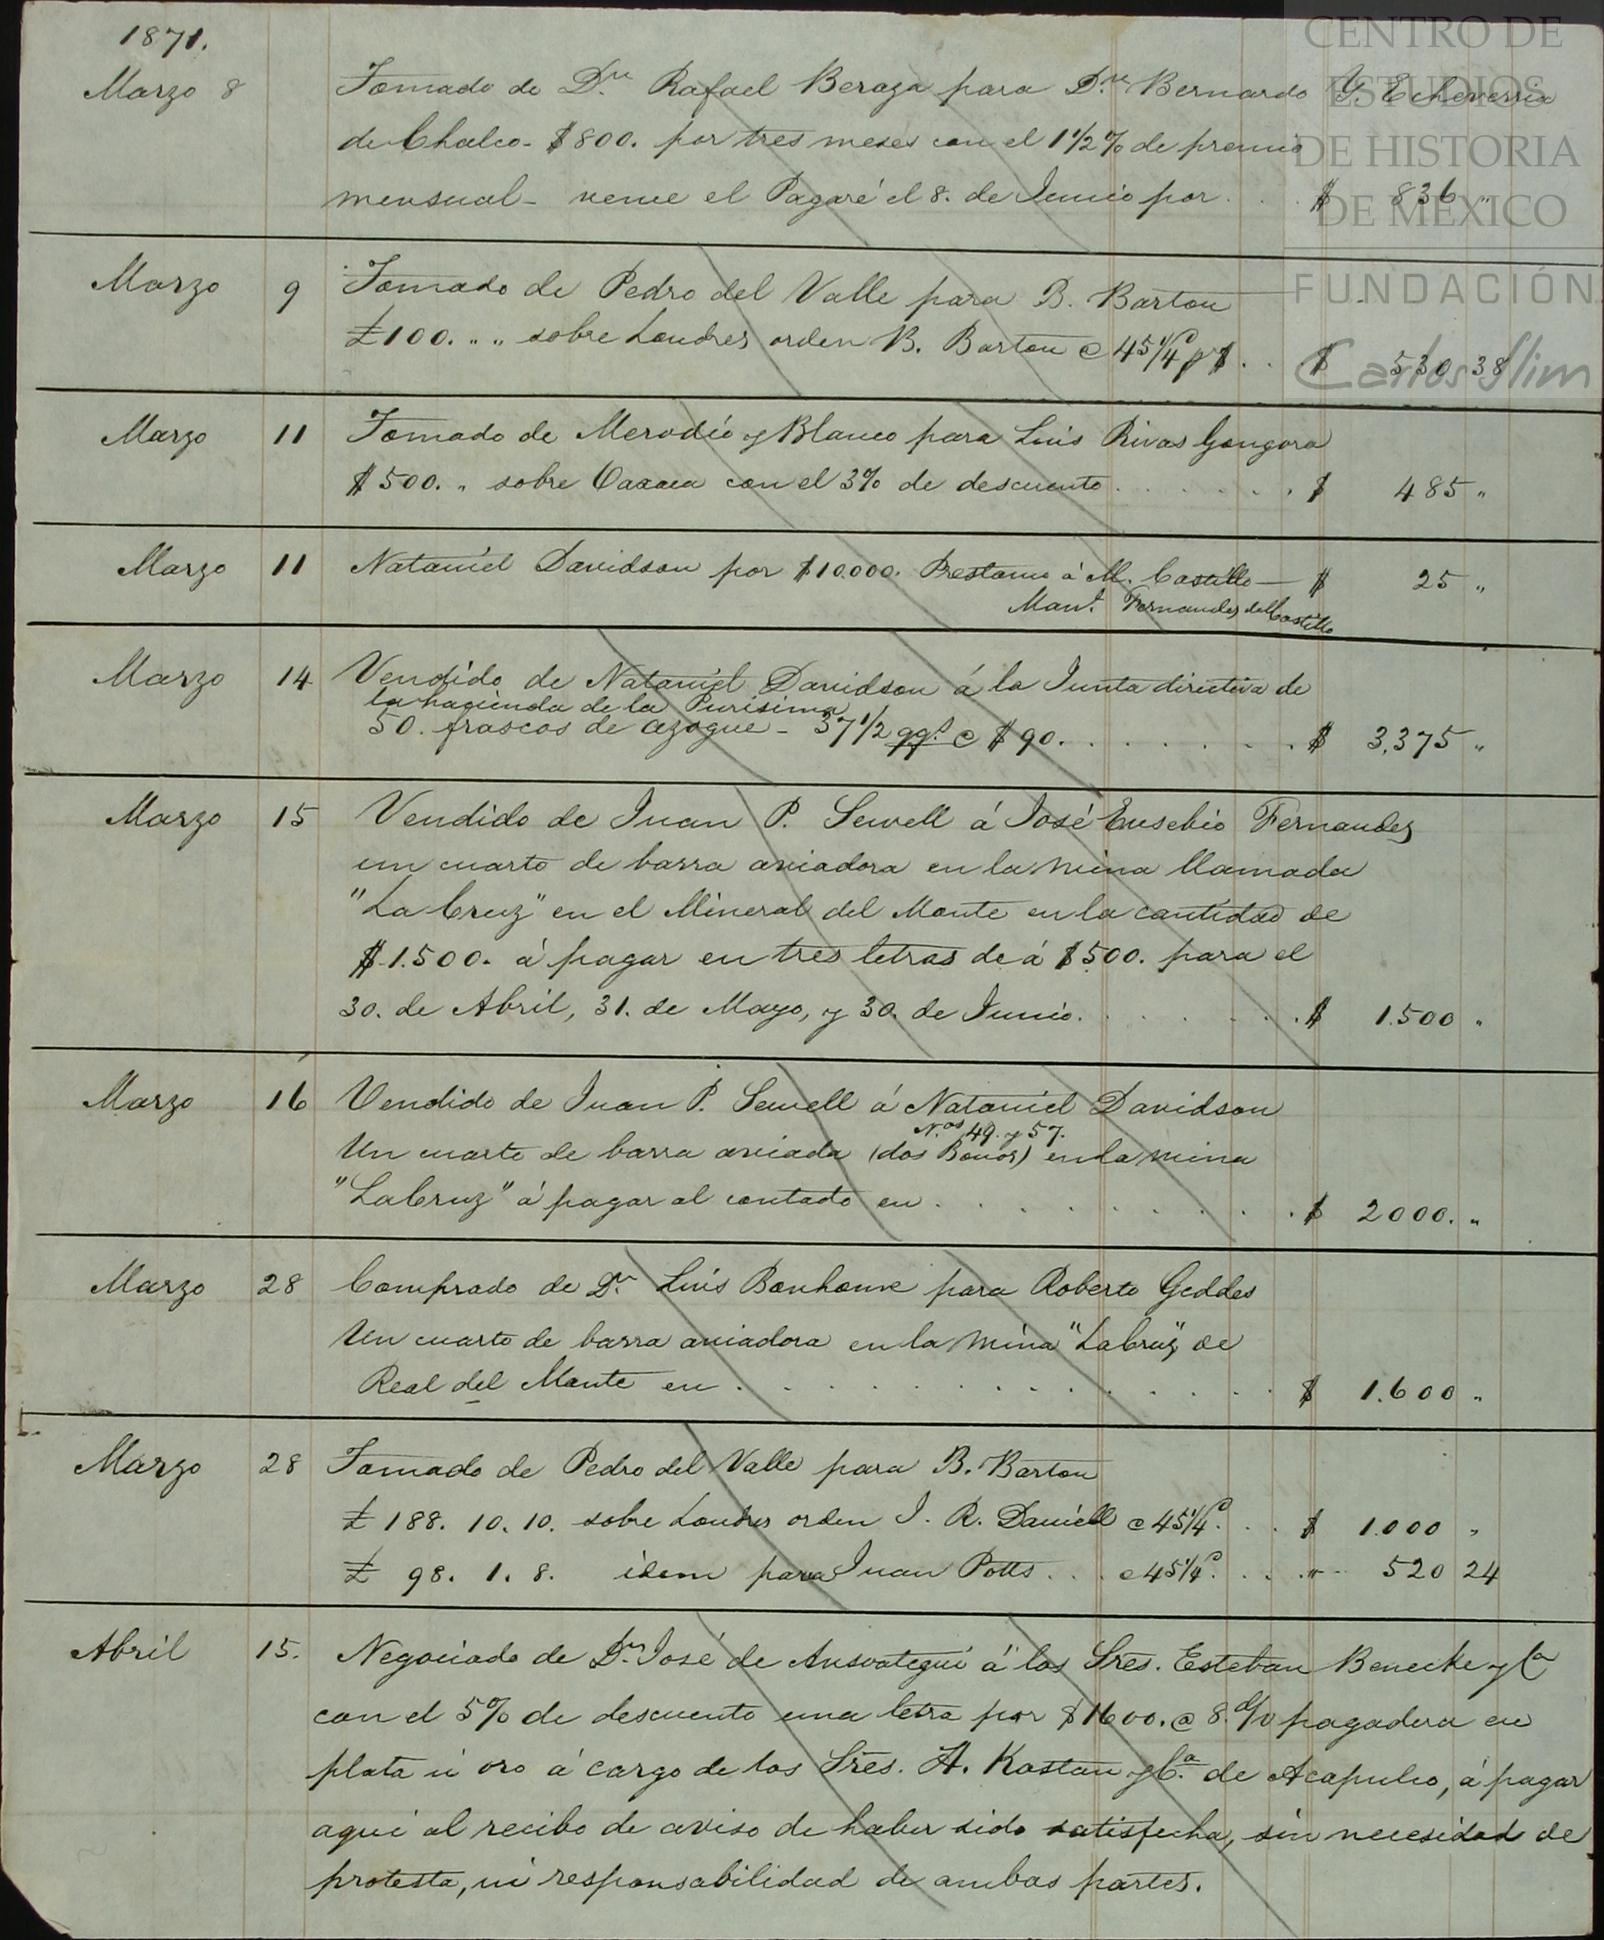 1871.
Marzo 8 Tomado de Dn. Rafael Beraza para Dn. Bernardo Y. Echeverria
de Chalco - $800. por tres meses con el 1 1/2 % de premio
mensual - vence el Pagaré el 8. de Junio por . . . $ 836 "
Marzo 9 Tomado de Pedro del Valle para B. Barton
£100. " " sobre Londres orden B. Barton @ 45 1/4 p $ . . $ 530 38
Marzo 11 Tomado de Merodio y Blanco para Luis Rivas Gongora
$500. " sobre Oaxaca con el 3% de descuento . . . . . . . $ 485 "
Marzo 11 Nataniel Davidson por $10.000. Prestamo á M. Castillo — $ 25 "
Manl. Fernandez del Castillo
Marzo 14 Vendido de Nataniel Davidson á la Junta directiva de
la hacienda de la Purisima
50. frascos de azogue - 37 1/2 qqs. @ $90. . . . . . . . . $ 3,375 "
Marzo 15 Vendido de Juan P. Sewell á José Eusebio Fernandez
un cuarto de barra aviadora en la mina llamada
"La Cruz" en el Mineral del Monte en la cantidad de
$1.500. á pagar en tres letras de á $500. para el
30. de Abril, 31. de Mayo, y 30. de Junio. . . . . . . . $ 1.500 "
Marzo 16 Vendido de Juan P. Sewell á Nataniel Davidson
Nos. 49. y 57.
Un cuarto de barra aviada (dos Bonos) en la mina
"La Cruz" á pagar al contado en . . . . . . . . . . $ 2000. "
Marzo 28 Comprado de Dn. Luis Bonhome para Roberto Geddes
Un cuarto de barra aviadora en la mina "La Cruz" de
Real del Monte en . . . . . . . . . . . . . . $ 1.600 "
Marzo 28 Tomado de Pedro del Valle para B. Barton
£ 188. 10. 10. sobre Londres orden J. R. Daniell @ 45 1/4 . . . $ 1.000 "
£ 98. 1. 8. idem para Juan Potts . . . @ 45 1/4 . . . " 520 24
Abril 15. Negociado de Dn. José de Ansoategui á los Sres. Esteban Benecke y Ca
con el 5% de descuento una letra por $1600. @ 8. d/v pagadera en
plata ú oro á cargo de los Sres. A. Kastan y Ca. de Acapulco, á pagar
aqui al recibo de aviso de haber sido satisfecha, sin necesidad de
protesta, ni responsabilidad de ambas partes.
CENTRO DE
ESTUDIOS
DE HISTORIA
DE MÉXICO
FUNDACIÓN
Carlos Slim